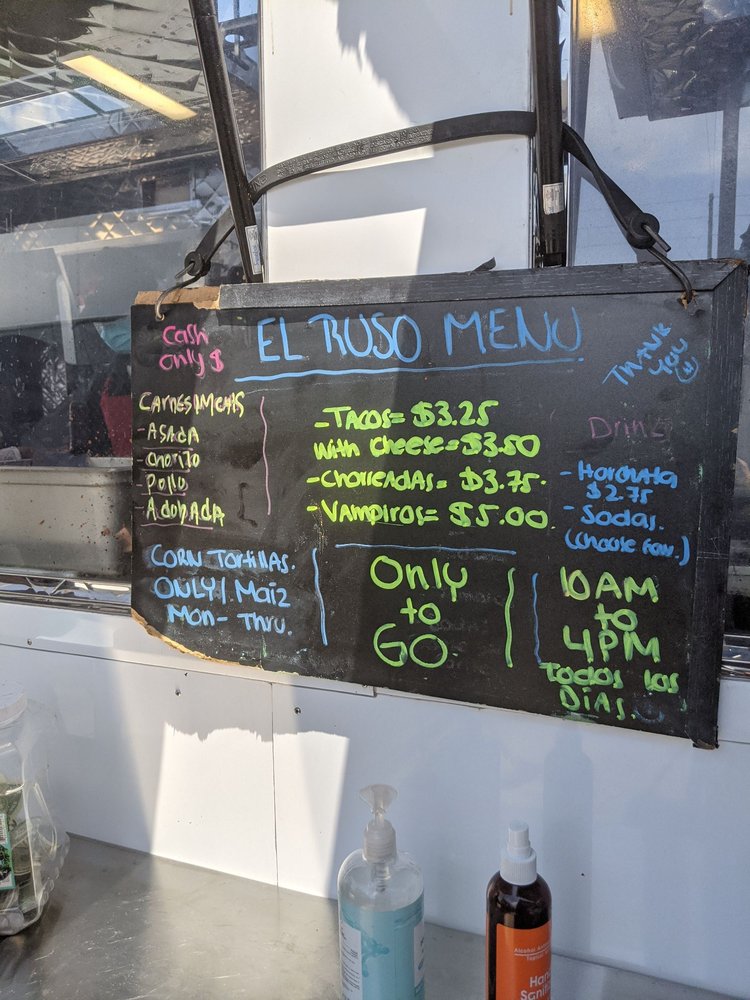 Cash
only $
EL RUSO MENU
THANK
YOU
CARNES/MEATS
-ASADA
-Chorizo
-Pollo
-Adobada
-TACOS= $3.25
With Cheese=$3.50
-Chorreadas= $3.75.
-Vampiros= $5.00.
Drinks
-Horchata
$2.75
-Sodas.
CORN Tortillas.
ONLY/Maiz
Mon-Thru.
Only
to
GO.
10AM
to
4PM
Todos los
Dias.
Hand